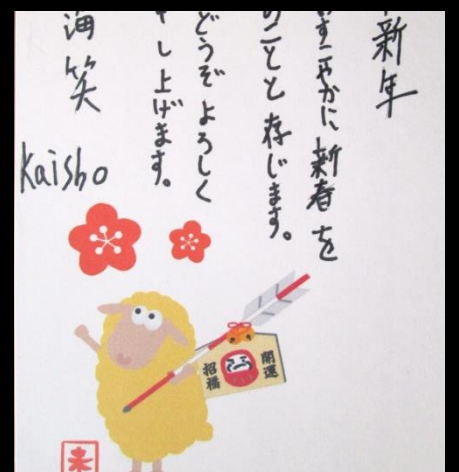 新年
すこやかに新春を
のことと存じます。
どうぞよろしく
し上げます。
海笑
Kaisho
開運
招福
未